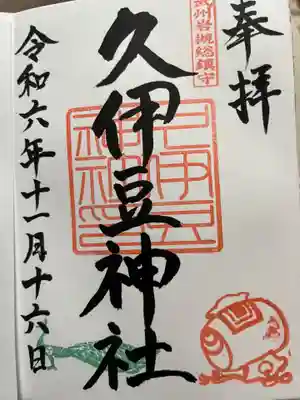 奉拝
武州岩槻総鎮守
久伊豆神社
久伊豆
神社印
令和六年十一月十六日